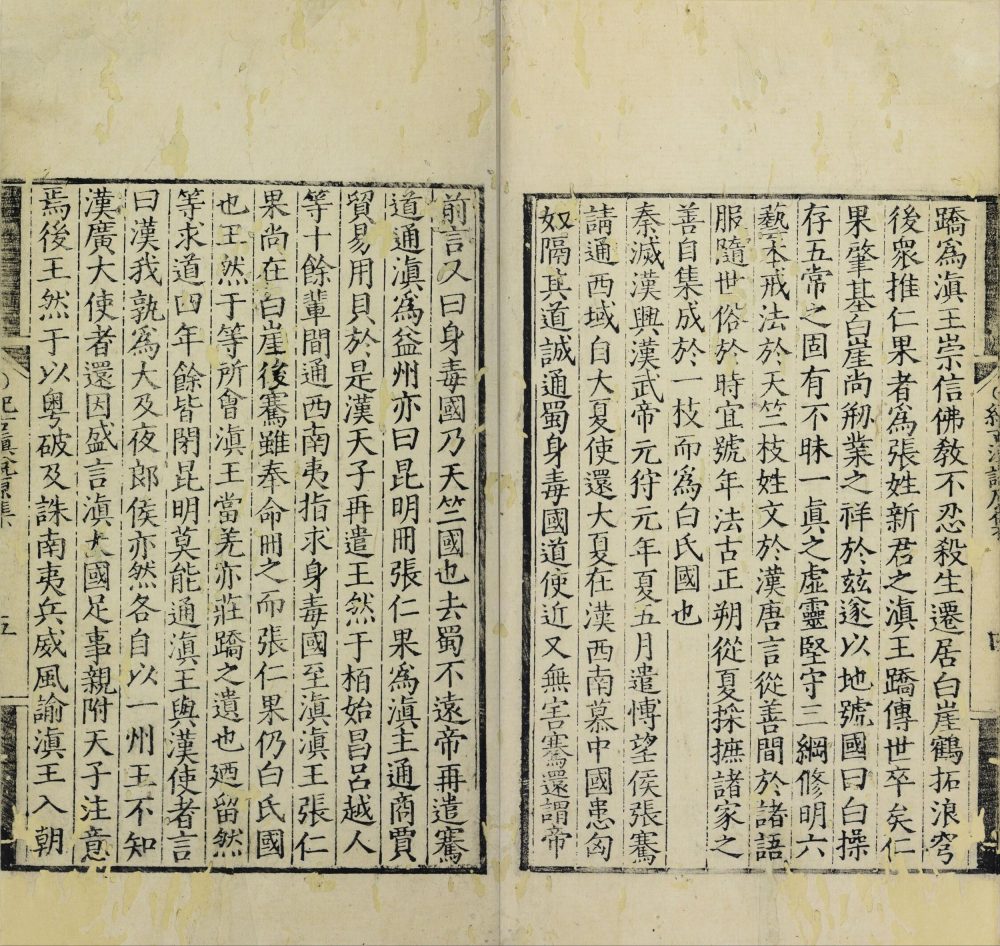 蹻為滇王崇信佛敎不忍殺生遷居白崖鶴拓浪穹
後衆推仁果者為張姓新君之滇王蹻傳世卒矣仁
果肇基白崖尚刱業之祥於茲遂以地號國曰白操
存五常之固有不昧一眞之虛靈堅守三綱修明六
藝本戒法於天竺枝姓文於漢唐言從善間於諸語
服隨世俗於時宜號年法古正朔從夏採摭諸家之
善自集成於一枝而為白氏國也
秦滅漢興漢武帝元狩元年夏五月遣愽望侯張騫
請通西域自大夏使還大夏在漢西南慕中國患匈
奴隔其道誠通蜀身毒國道便近又無害騫還謂帝
四
前言又曰身毒國乃天竺國也去蜀不遠帝再遣騫
道通滇為益州亦曰昆明冊張仁果為滇主通商賈
貿易用貝於是漢天子再遣王然于栢始昌呂越人
等十餘輩間通西南夷指求身毒國至滇滇王張仁
果尚在白崖後騫雖奉命冊之而張仁果仍白氏國
也王然于等所會滇王當羌亦莊蹻之遺也廼留然
等求道四年餘皆閉昆明莫能通滇王與漢使者言
曰漢我孰為大及夜郎侯亦然各自以一州王不知
漢廣大使者還因盛言滇大國足事親附天子注意
焉後王然于以粵破及誅南夷兵威風諭滇王入朝
五